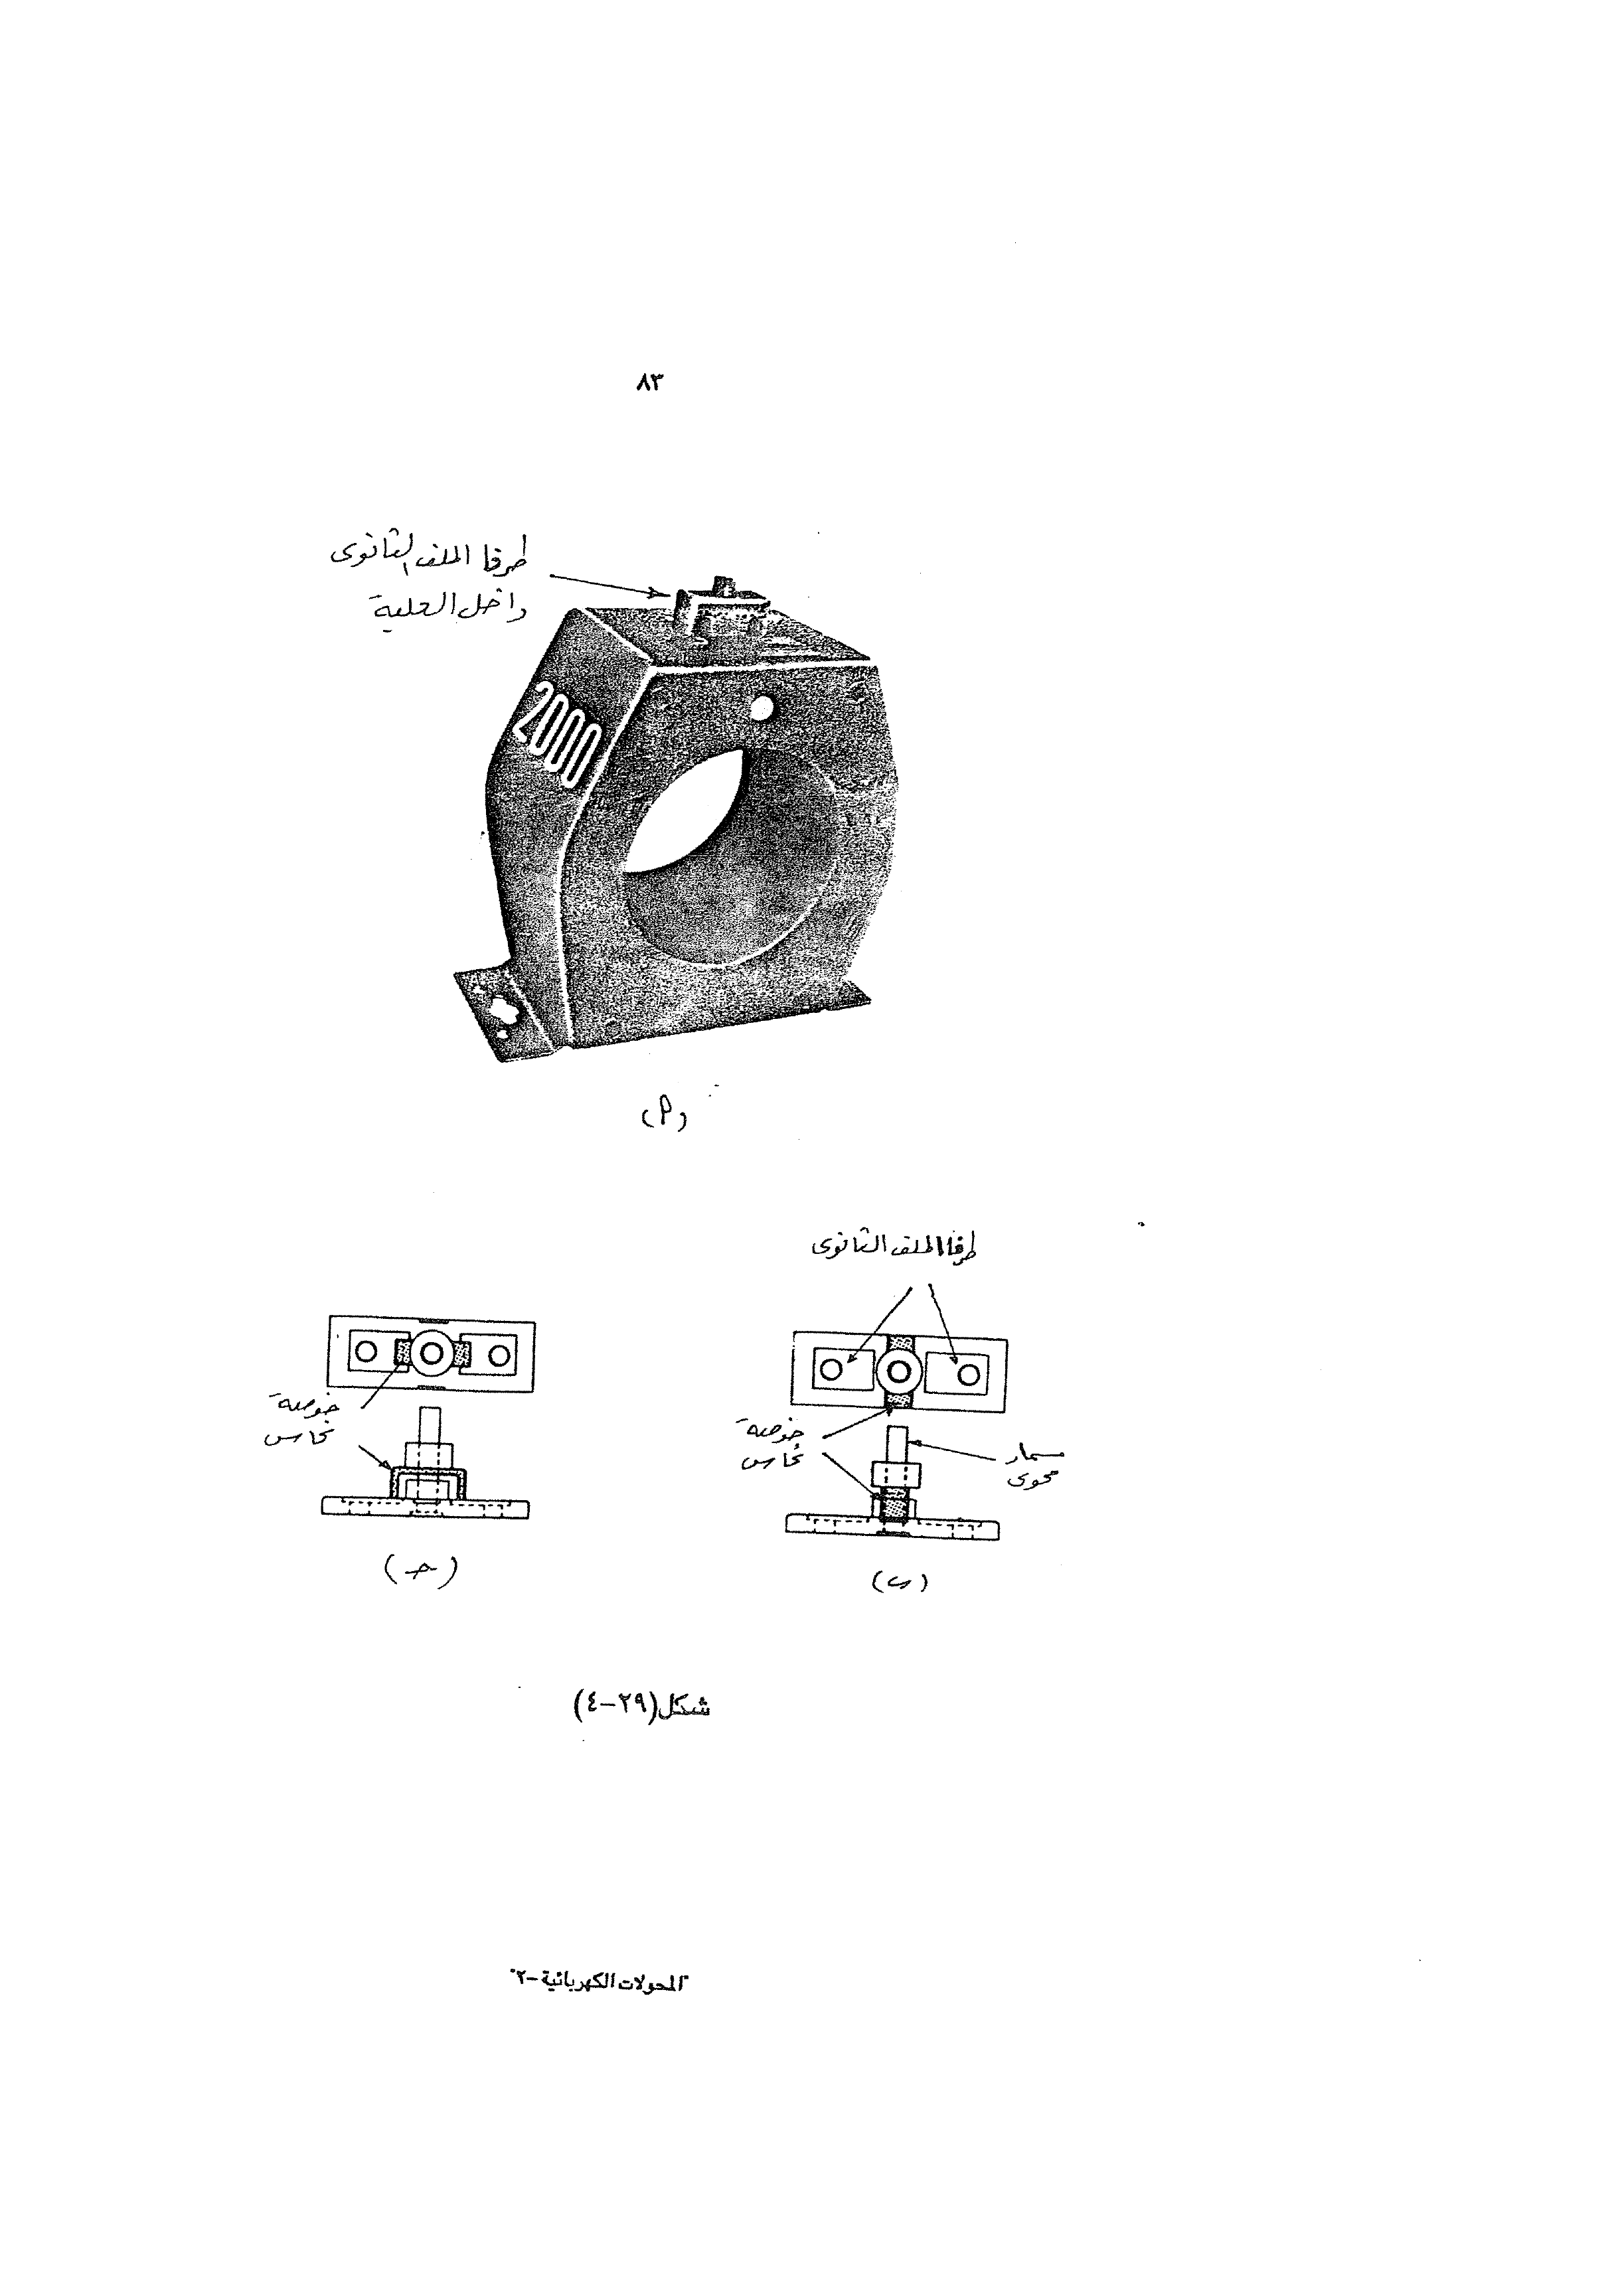 ٨٣
طرفا الملف الثانوى
داخل العلبة
2000
(أ)
طرفا الملف الثانوى
خوصة
نحاس
خوصة
نحاس
مسمار
محوى
(ب)
(حـ)
شكل(٢٩-٤)
"المحولات الكهربائية-٢"